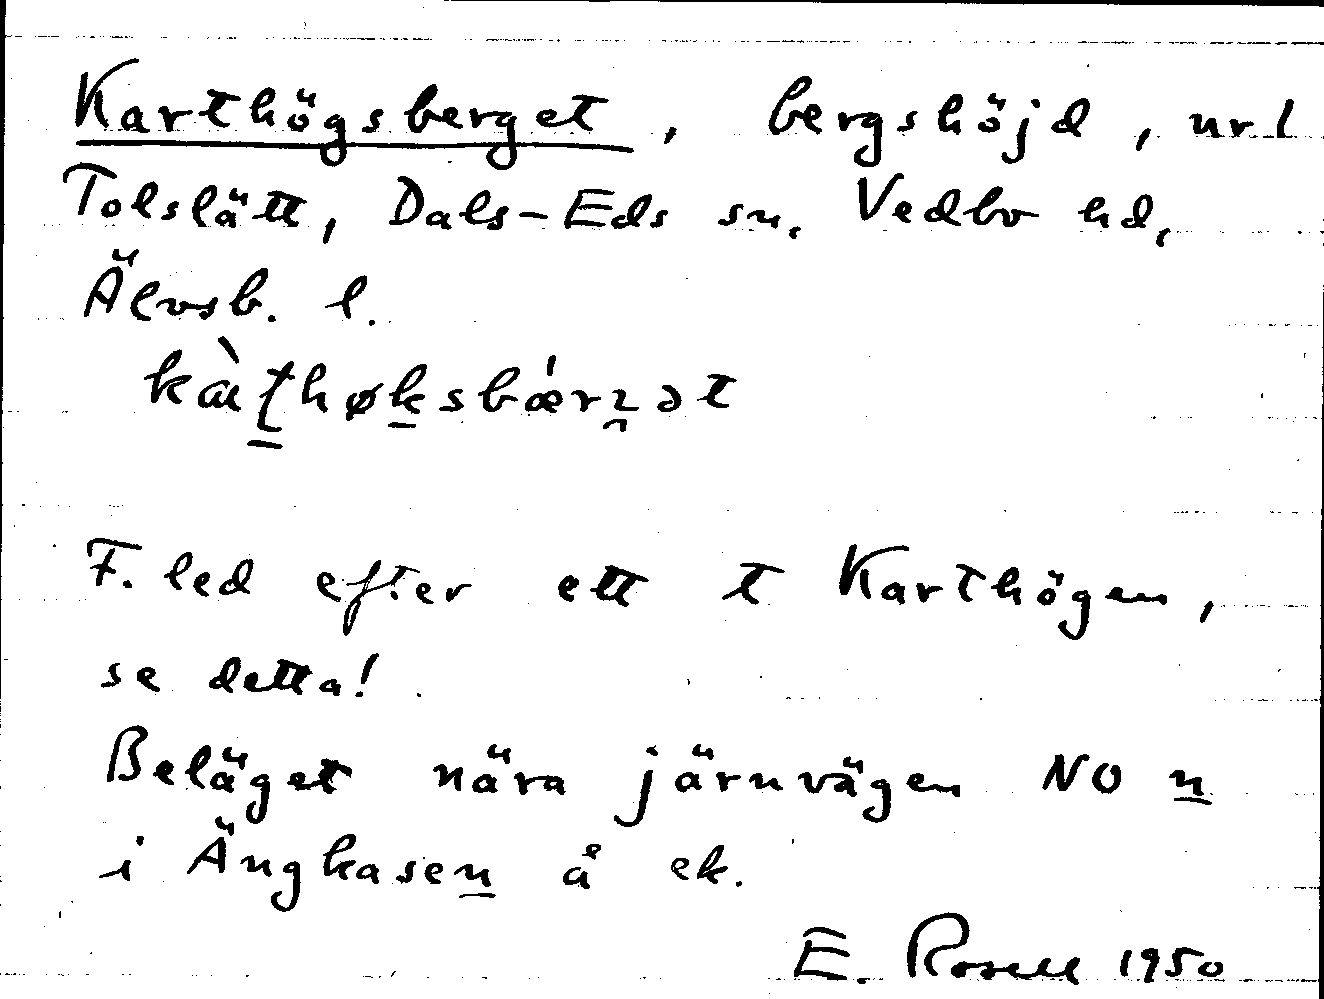 Karthögsberget, bergshöjd, nr 1
Tolslätt, Dals-Eds sn, Vedbo hd,
Älvsb. l.
F. led efter ett t Karthögen,
se detta!
Beläget nära järnvägen NO n
i Ängkasen å ek.
E. Rosell 1950